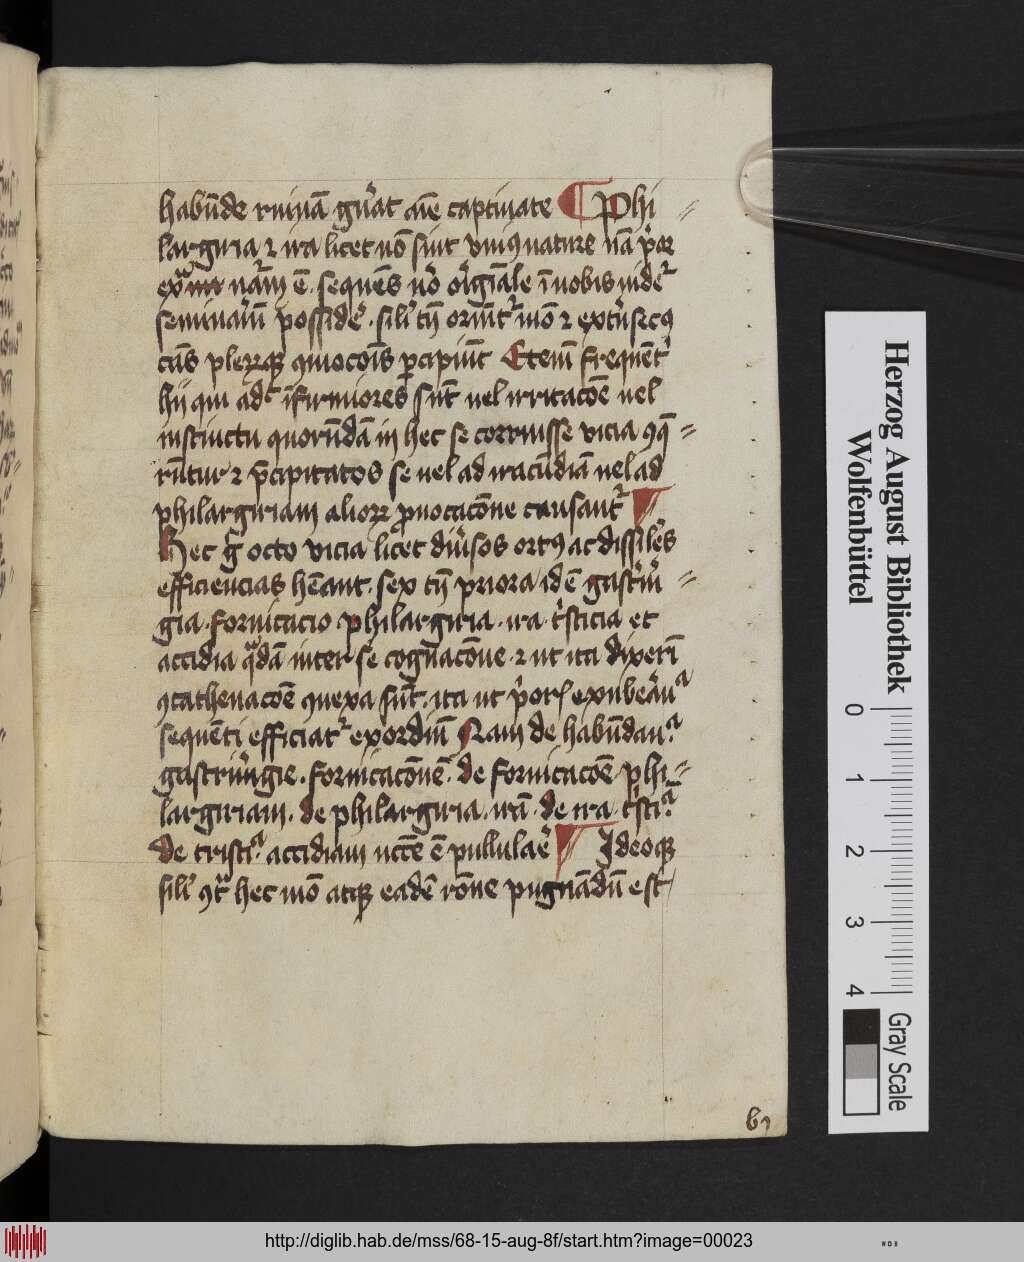 habūde ruinā gn̄at aīe captiuate ¶ Phi⸗
larguria ⁊ ira licet nō sint vniꝰ nature nā p̄or
ext̄ nr̄am ē. sequēs v̄o or̄giāle ī nobis uidet̄
seminariū possidēr. silīr tn̄ oriūt̄ mō ⁊ extr̄secꝰ
cās pleꝝꝗ qmocoīs ꝑcipiūt Eteni freqūet̄
hij qui adc̄ īfirmiores sūt uel irritacōe uel
instinctu quorūdā in hec se corruisse vicia ꝯq̄⸗
rūtur ⁊ p̄cipitatos se uel ad iracūdiā uel ad
philarguriam alioꝝ ꝓuocacōne causant̄
Hec g̊ octo vicia licet diūsos ortꝰ ac dissiles
efficiencias hēant. sex tn̄ priora idē gastrīn⸗
gia. fornicacio. philarguria. ira. tr̄sticia et
accidia q̄dā inter se cognacōne. ⁊ ut ita dixerī
ꝯcathenacōe ꝯnexa sūt. ita ut p̄oris exūberāti
sequēti efficiat̄ exordiū Nam de habūdan.ᵃ
gastrīngie. fornicacōnē. de fornicacōe phi⸗
larguriam. de philarguria. irā. de ira tr̄sti.ᵃ
de tristi.ᵃ accidiam nc̄cē ē pullulaēr ¶ Ideoꝗ
silīr ꝯt̄ hec mō atꝗ eadē rōne pugnādū est
b1
Herzog August Bibliothek
Wolfenbüttel
0 1 2 3 4
Gray Scale
http://diglib.hab.de/mss/68-15-aug-8f/start.htm?image=00023